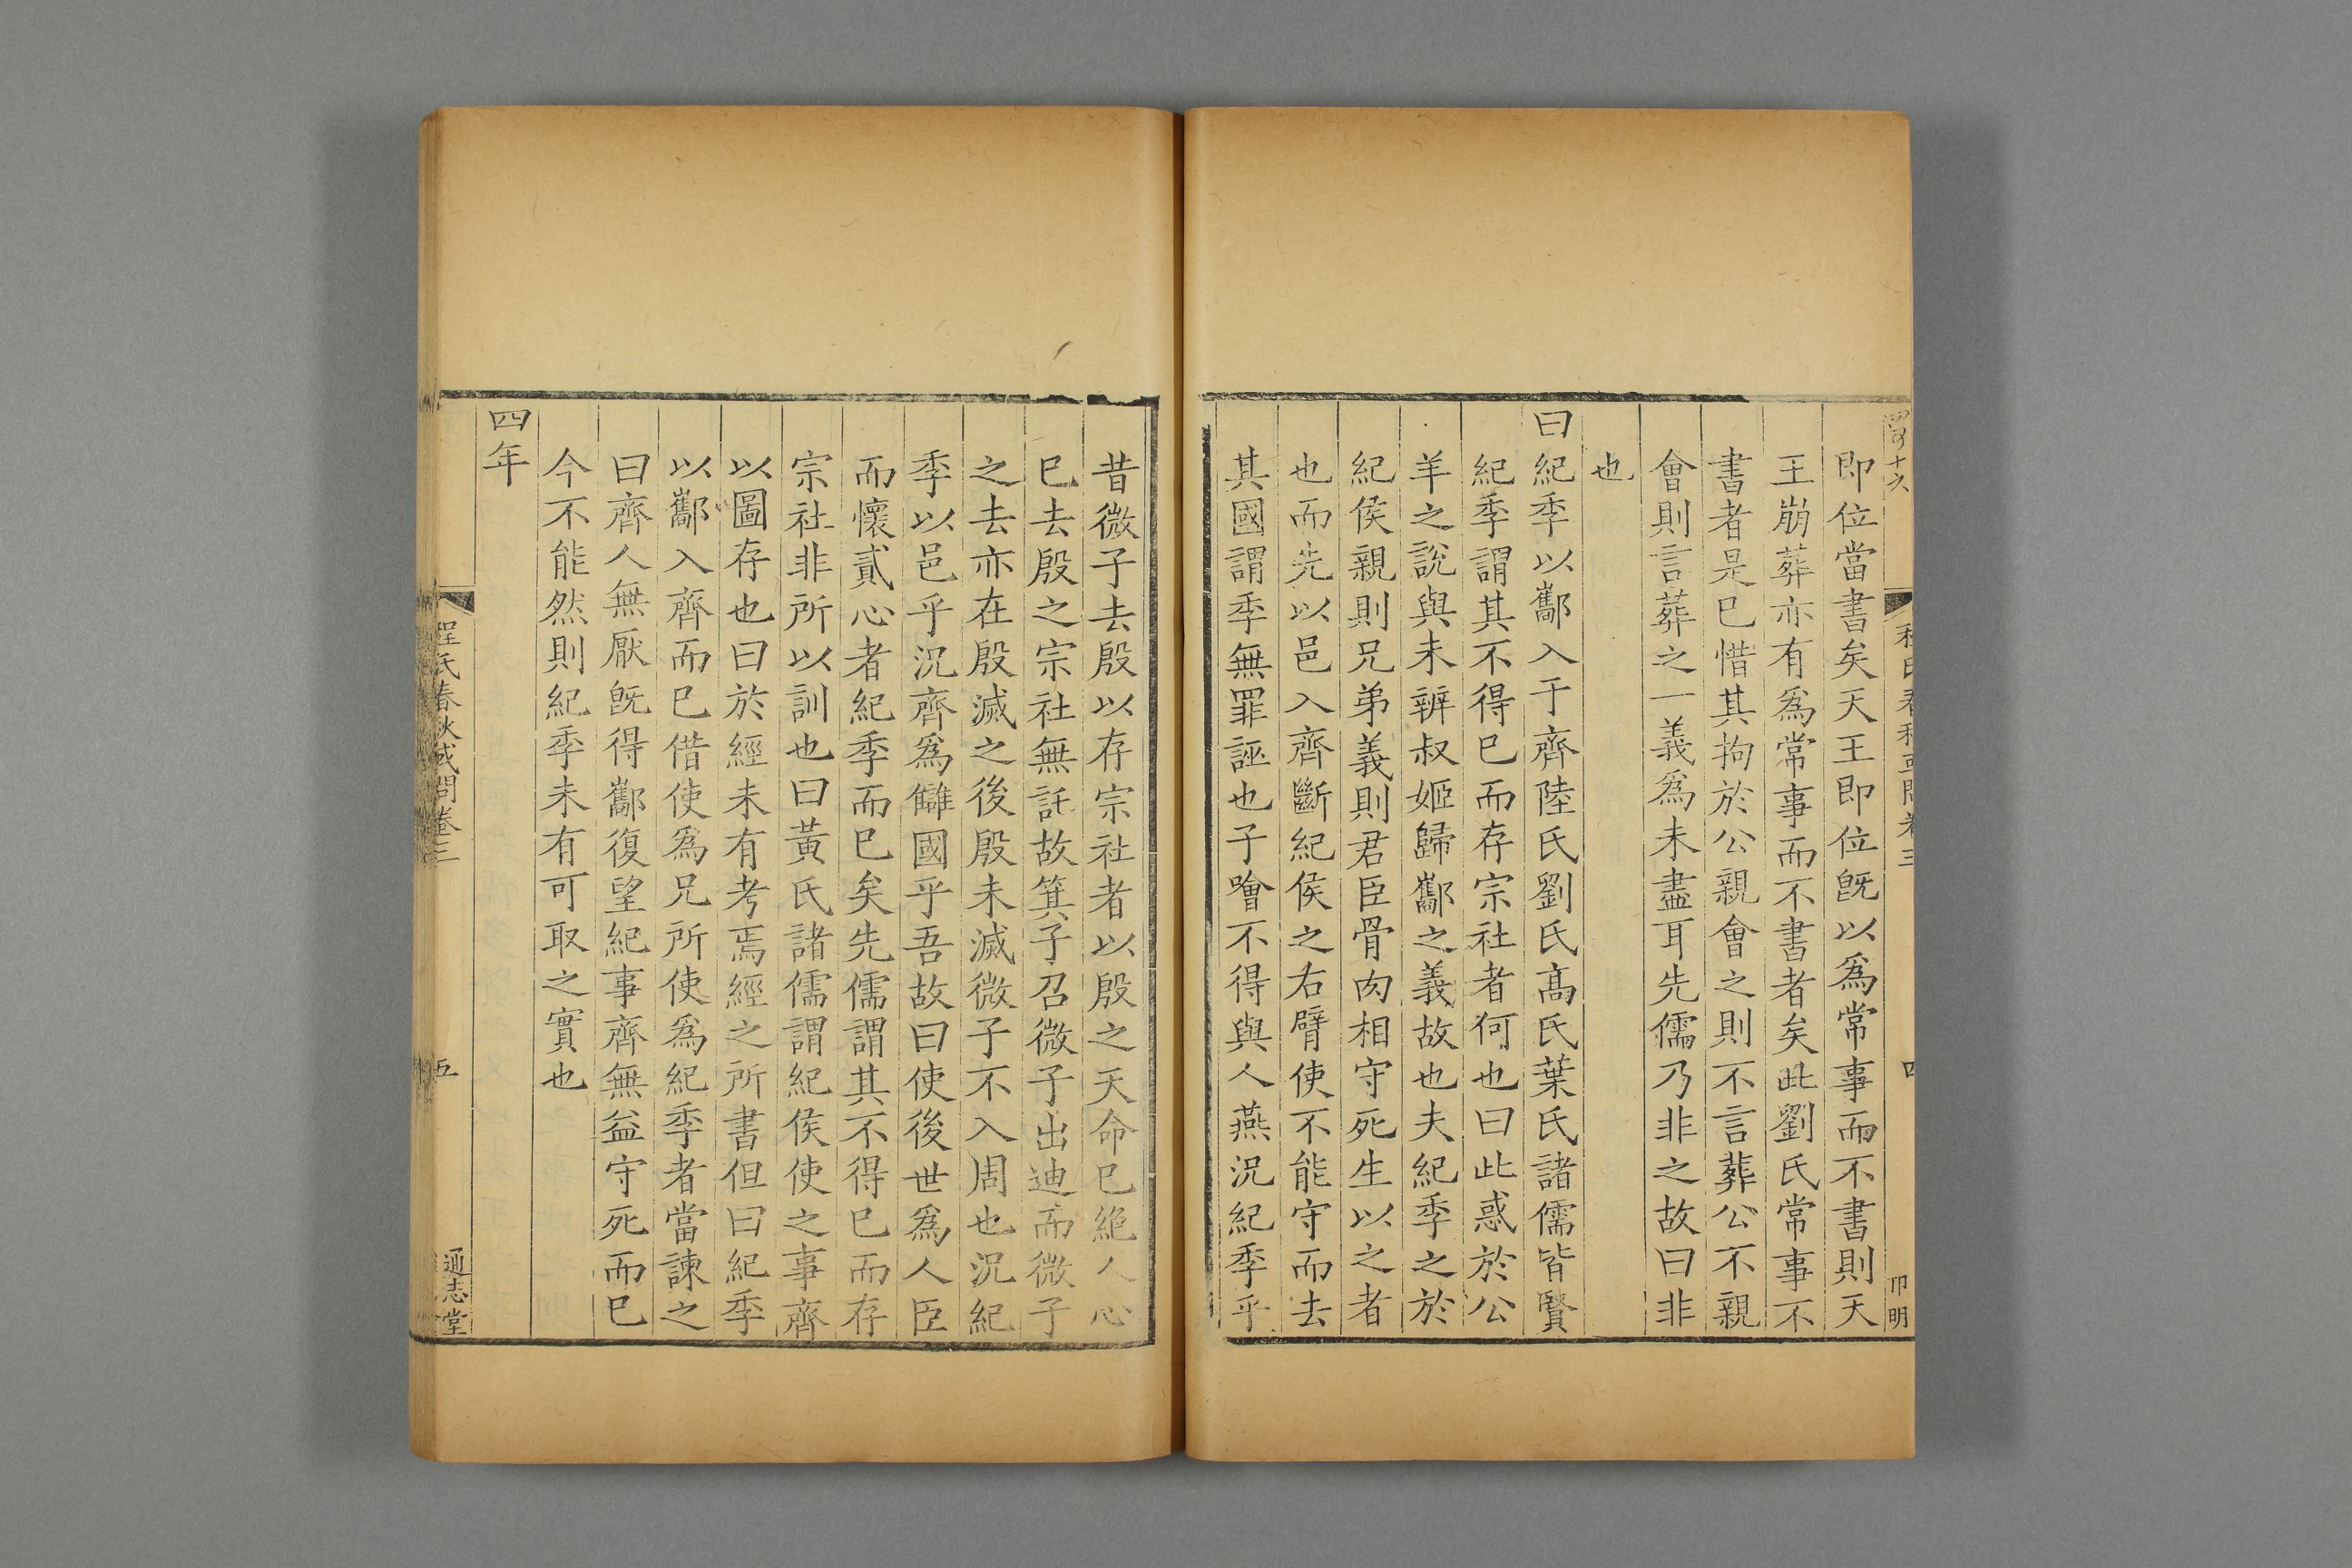 程氏春秋或問卷三
四
卬明
即位當書矣天王即位旣以爲常事而不書則天
王崩葬亦有爲常事而不書者矣此劉氏常事不
書者是已惜其拘於公親會之則不言葬公不親
會則言葬之一義爲未盡耳先儒乃非之故曰非
也
曰紀季以酅入于齊陸氏劉氏髙氏葉氏諸儒皆賢
紀季謂其不得已而存宗社者何也曰此惑於公
羊之說與未辨叔姬歸酅之義故也夫紀季之於
紀侯親則兄弟義則君臣骨肉相守死生以之者
也而先以邑入齊斷紀侯之右臂使不能守而去
其國謂季無罪誣也子噲不得與人燕況紀季乎
昔微子去殷以存宗社者以殷之天命已絕人心
已去殷之宗社無託故箕子召微子出迪而微子
之去亦在殷滅之後殷未滅微子不入周也況紀
季以邑乎況齊爲讎國乎吾故曰使後世爲人臣
而懷貳心者紀季而已矣先儒謂其不得已而存
宗社非所以訓也曰黃氏諸儒謂紀侯使之事齊
以圖存也曰於經未有考焉經之所書但曰紀季
以酅入齊而已借使爲兄所使爲紀季者當諫之
曰齊人無厭旣得酅復望紀事齊無益守死而已
今不能然則紀季未有可取之實也
四年
程氏春秋或問卷三
五
通志堂